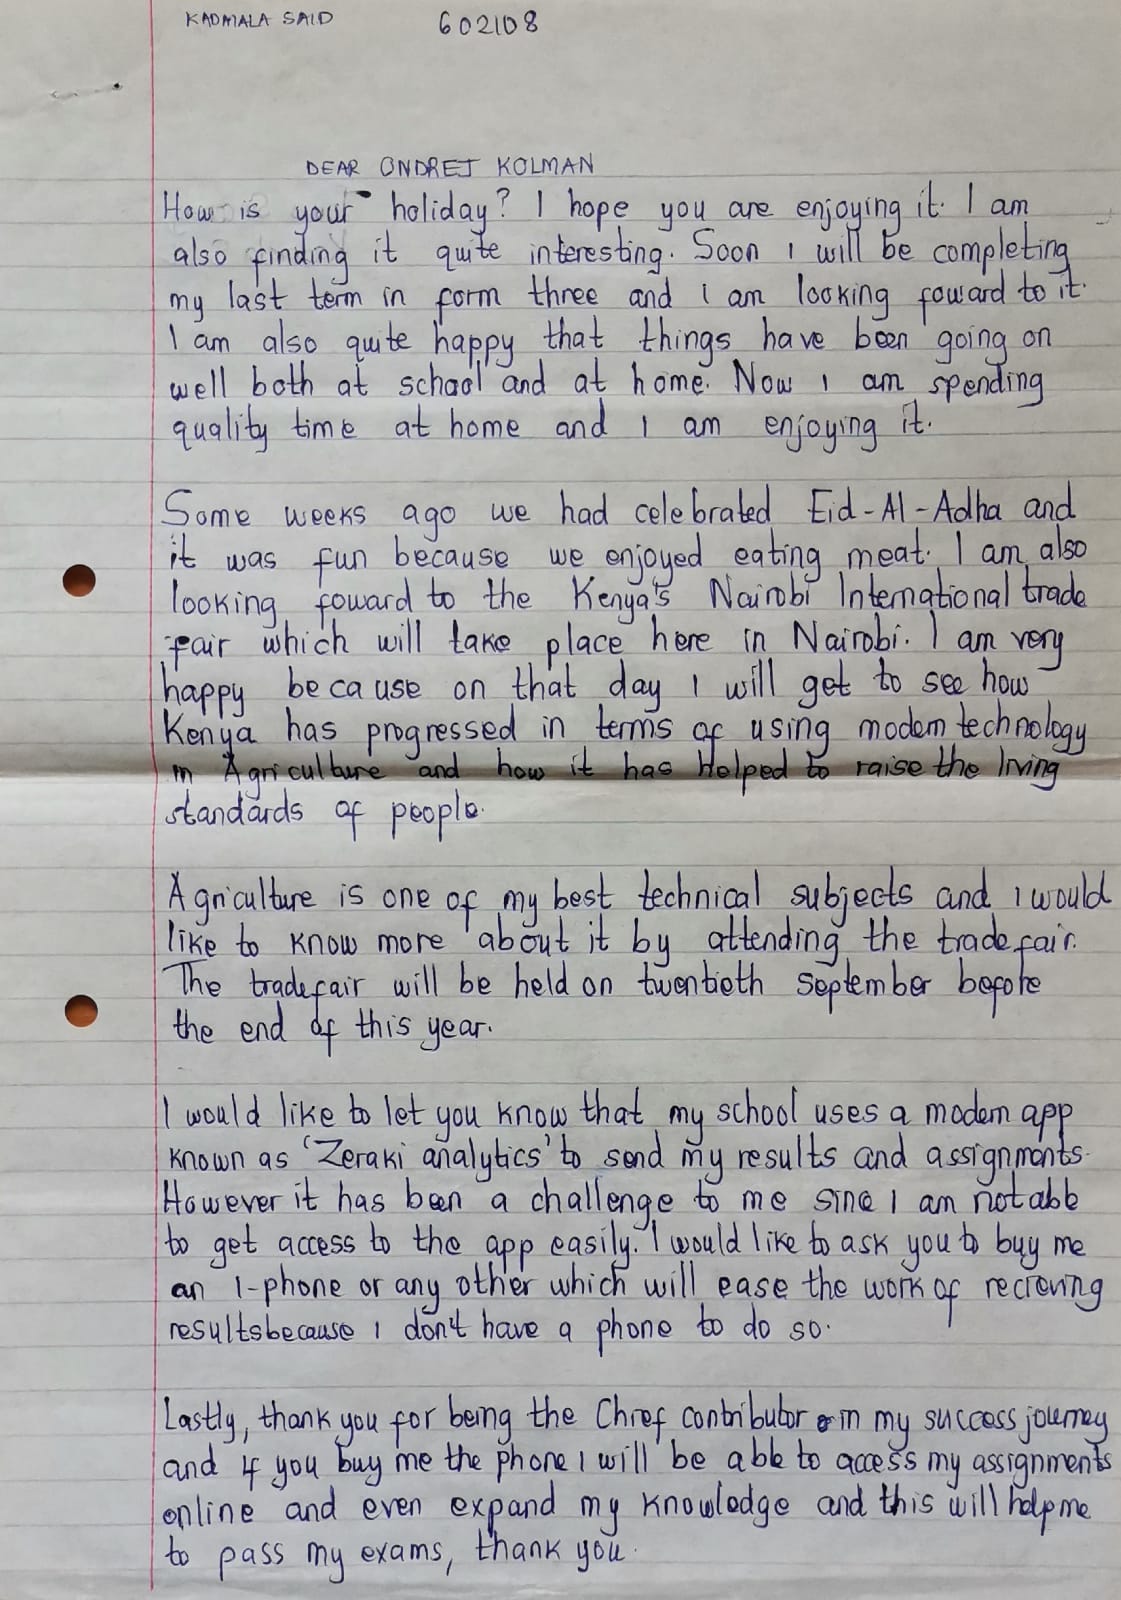 KADMALA SAID 602108
DEAR ONDREJ KOLMAN
How is your holiday? I hope you are enjoying it. I am
also finding it quite interesting. Soon I will be completing
my last term in form three and i am looking foward to it.
I am also quite happy that things have been going on
well both at school and at home. Now I am spending
quality time at home and I am enjoying it.
Some weeks ago we had celebrated Eid-Al-Adha and
it was fun because we enjoyed eating meat. I am also
looking foward to the Kenya's Nairobi International trade
fair which will take place here in Nairobi. I am very
happy because on that day I will get to see how
Kenya has progressed in terms of using modern technology
in Agriculture and how it has Helped to raise the living
standards of people.
Agriculture is one of my best technical subjects and I would
like to know more about it by attending the tradefair.
The tradefair will be held on twentieth september before
the end of this year.
I would like to let you know that my school uses a modern app
known as 'Zeraki analytics' to send my results and assignments.
However it has been a challenge to me sine I am not able
to get access to the app easily. I would like to ask you to buy me
an I-phone or any other which will ease the work of recieving
results because I don't have a phone to do so.
Lastly, thank you for being the Chief contributor in my success journey
and if you buy me the phone I will be able to access my assignments
online and even expand my knowledge and this will help me
to pass my exams, thank you.